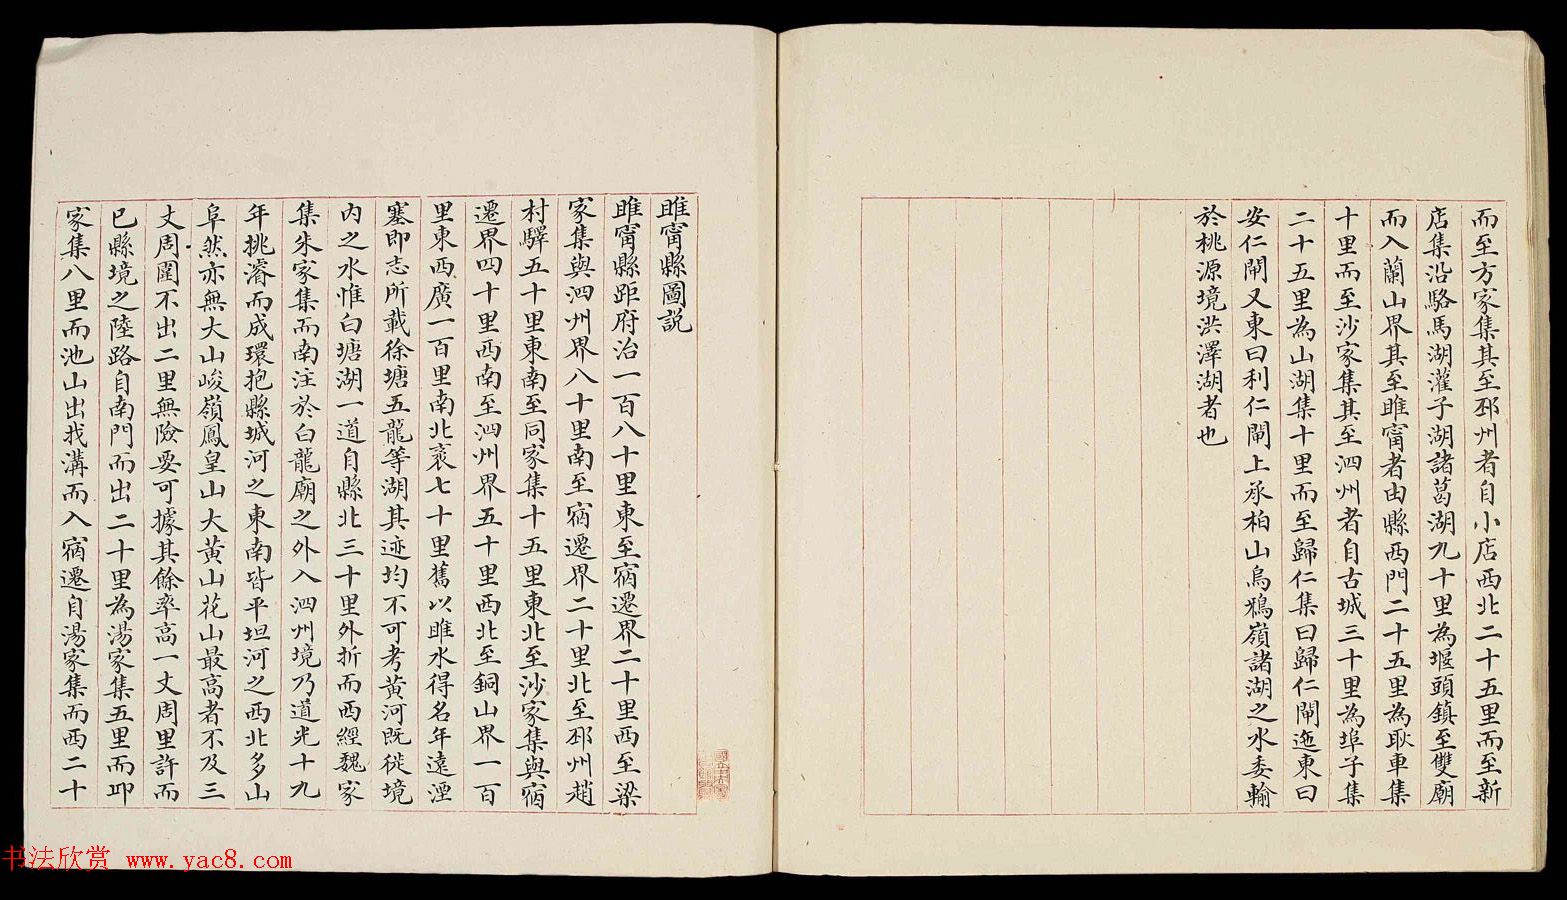 而至方家集其至邳州者自小店西北二十五里而至新
店集沿駱馬湖灌子湖諸葛湖九十里為堰頭鎮至雙廟
而入蘭山界其至睢甯者由縣西門二十五里為耿車集
十里而至沙家集其至泗州者自古城三十里為埠子集
二十五里為山湖集十里而至歸仁集曰歸仁閘迤東曰
安仁閘又東曰利仁閘上承柏山烏鴉嶺諸湖之水委輸
於桃源境洪澤湖者也
睢甯縣圖説
睢甯縣距府治一百八十里東至宿遷界二十里西至梁
家集與泗州界八十里南至宿遷界二十里北至邳州趙
村驛五十里東南至同家集十五里東北至沙家集與宿
遷界四十里西南至泗州界五十里西北至銅山界一百
里東西廣一百里南北袤七十里舊以睢水得名年遠湮
塞即志所載徐塘五龍等湖其迹均不可考黃河既徙境
內之水惟白塘湖一道自縣北三十里外折而西經魏家
集朱家集而南注於白龍廟之外入泗州境乃道光十九
年挑濬而成環抱縣城河之東南皆平坦河之西北多山
阜然亦無大山峻嶺鳳皇山大黃山花山最高者不及三
丈周圍不出二里無險要可據其餘率高一丈周里許而
已縣境之陸路自南門而出二十里為湯家集五里而卭
家集八里而池山出找溝而入宿遷自湯家集而西二十
书法欣赏 www.yac8.com